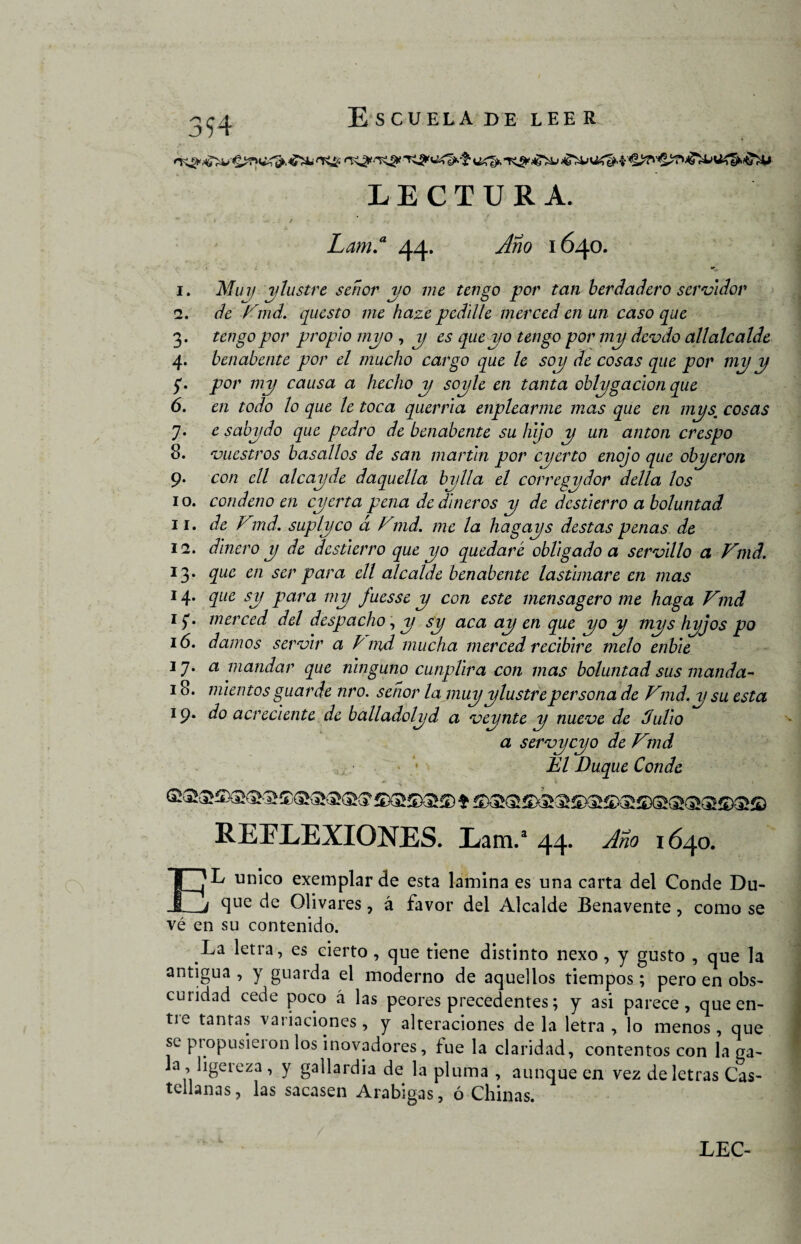 354
ESCUELA DE LEER
LECTURA.
Lam.ª 44. Año 1640.
1. Muy ylustre señor yo me tengo por tan berdadero servidor
2. de Vmd. questo me haze pedille merced en un caso que
3. tengo por propio myo , y es que yo tengo por my devdo allalcalde
4. benabente por el mucho cargo que le soy de cosas que por my y
5. por my causa a hecho y soyle en tanta oblygacion que
6. en todo lo que le toca querria enplearme mas que en mys cosas
7. e sabydo que pedro de benabente su hijo y un anton crespo
8. vuestros basallos de san martin por cyerto enojo que obyeron
9. con ell alcayde daquella bylla el corregydor della los
10. condeno en cyerta pena de dineros y de destierro a boluntad
11. de Vmd. suplyco á Vmd. me la hagays destas penas de
12. dinero y de destierro que yo quedaré obligado a servillo a Vmd.
13. que en ser para ell alcalde benabente lastimare en mas
14. que sy para my fuesse y con este mensagero me haga Vmd
15. merced del despacho, y sy aca ay en que yo y mys hyjos po
16. damos servir a Vmd mucha merced recibire melo enbie
17. a mandar que ninguno cunplira con mas boluntad sus manda-
18. mientos guarde nro. señor la muy ylustre persona de Vmd. y su esta
19. do acreciente de balladolyd a veynte y nueve de Julio
a servycyo de Vmd
El Duque Conde
REFLEXIONES. Lam.ª 44. Año 1640.
EL unico exemplar de esta lamina es una carta del Conde Du-
que de Olivares, á favor del Alcalde Benavente, como se
vé en su contenido.
La letra, es cierto, que tiene distinto nexo, y gusto, que la
antigua, y guarda el moderno de aquellos tiempos; pero en obs-
curidad cede poco á las peores precedentes; y asi parece, que en-
tre tantas variaciones, y alteraciones de la letra, lo menos, que
se propusieron los inovadores, fue la claridad, contentos con la ga-
la, ligereza, y gallardia de la pluma, aunque en vez de letras Cas-
tellanas, las sacasen Arabigas, ó Chinas.
LEC-